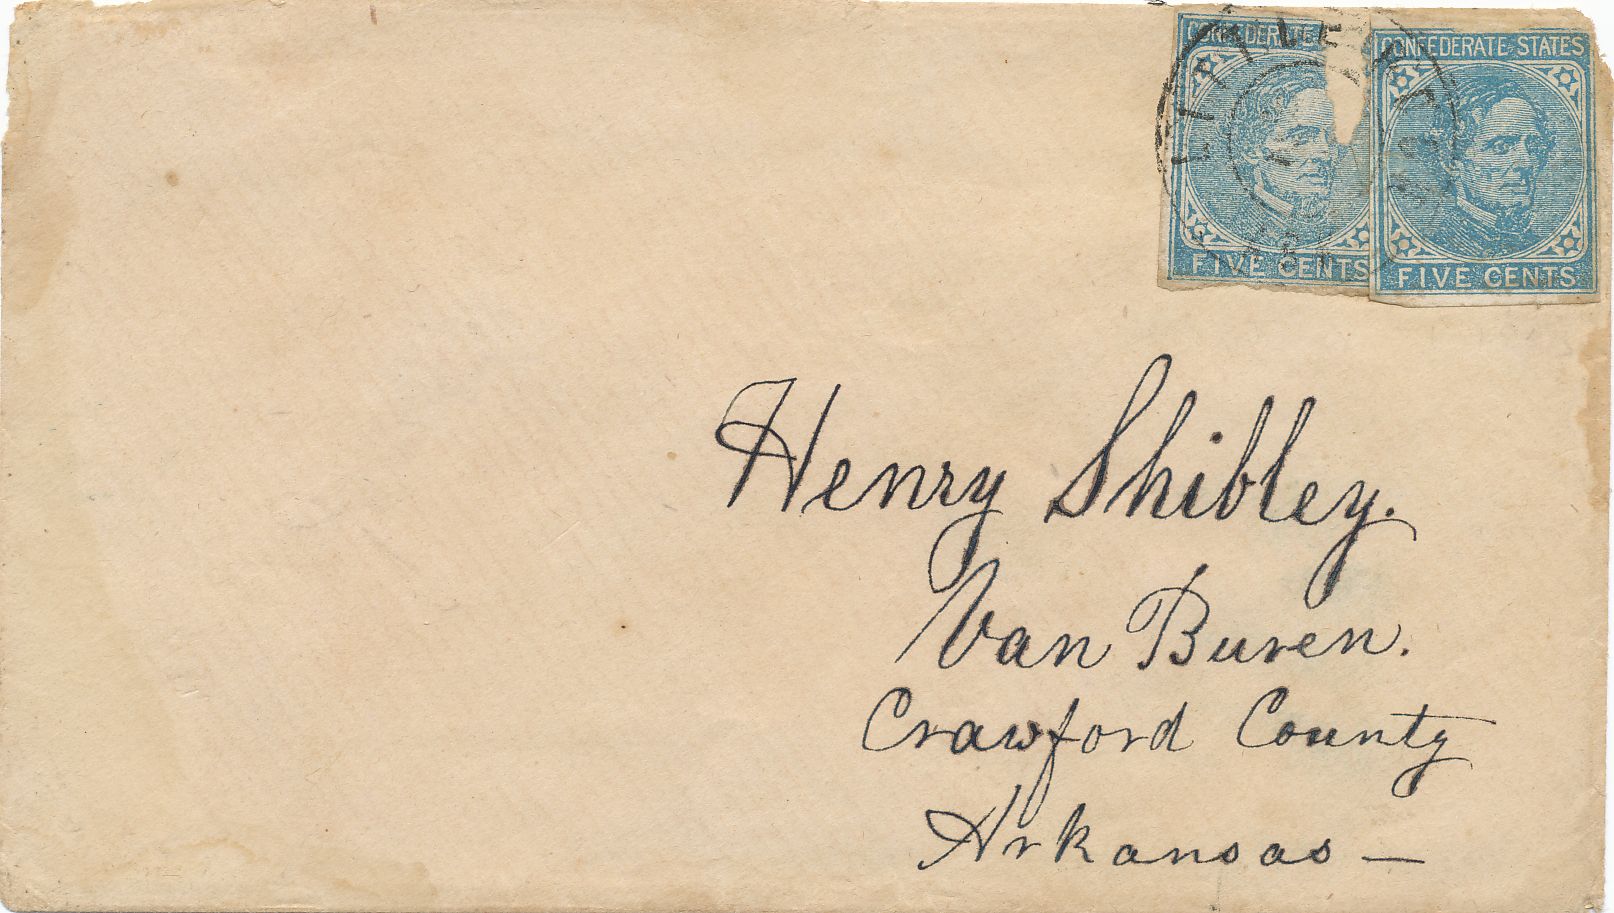 CONFEDERATE
CONFEDERATE STATES
FIVE CENTS
FIVE CENTS
Henry Shibley.
Van Buren.
Crawford County
Arkansas —